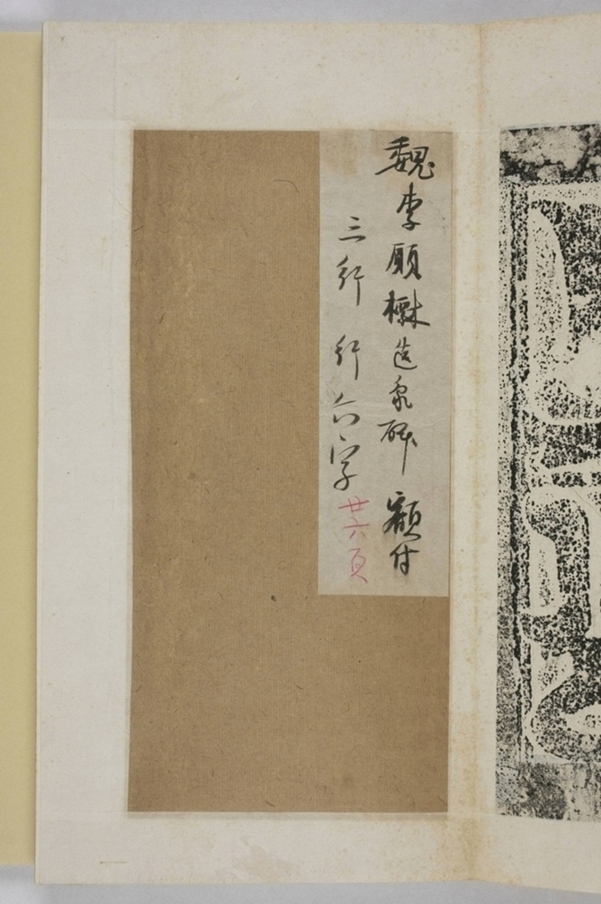 魏李願㯭造象碑 額付
三行 行六字 廿六頁